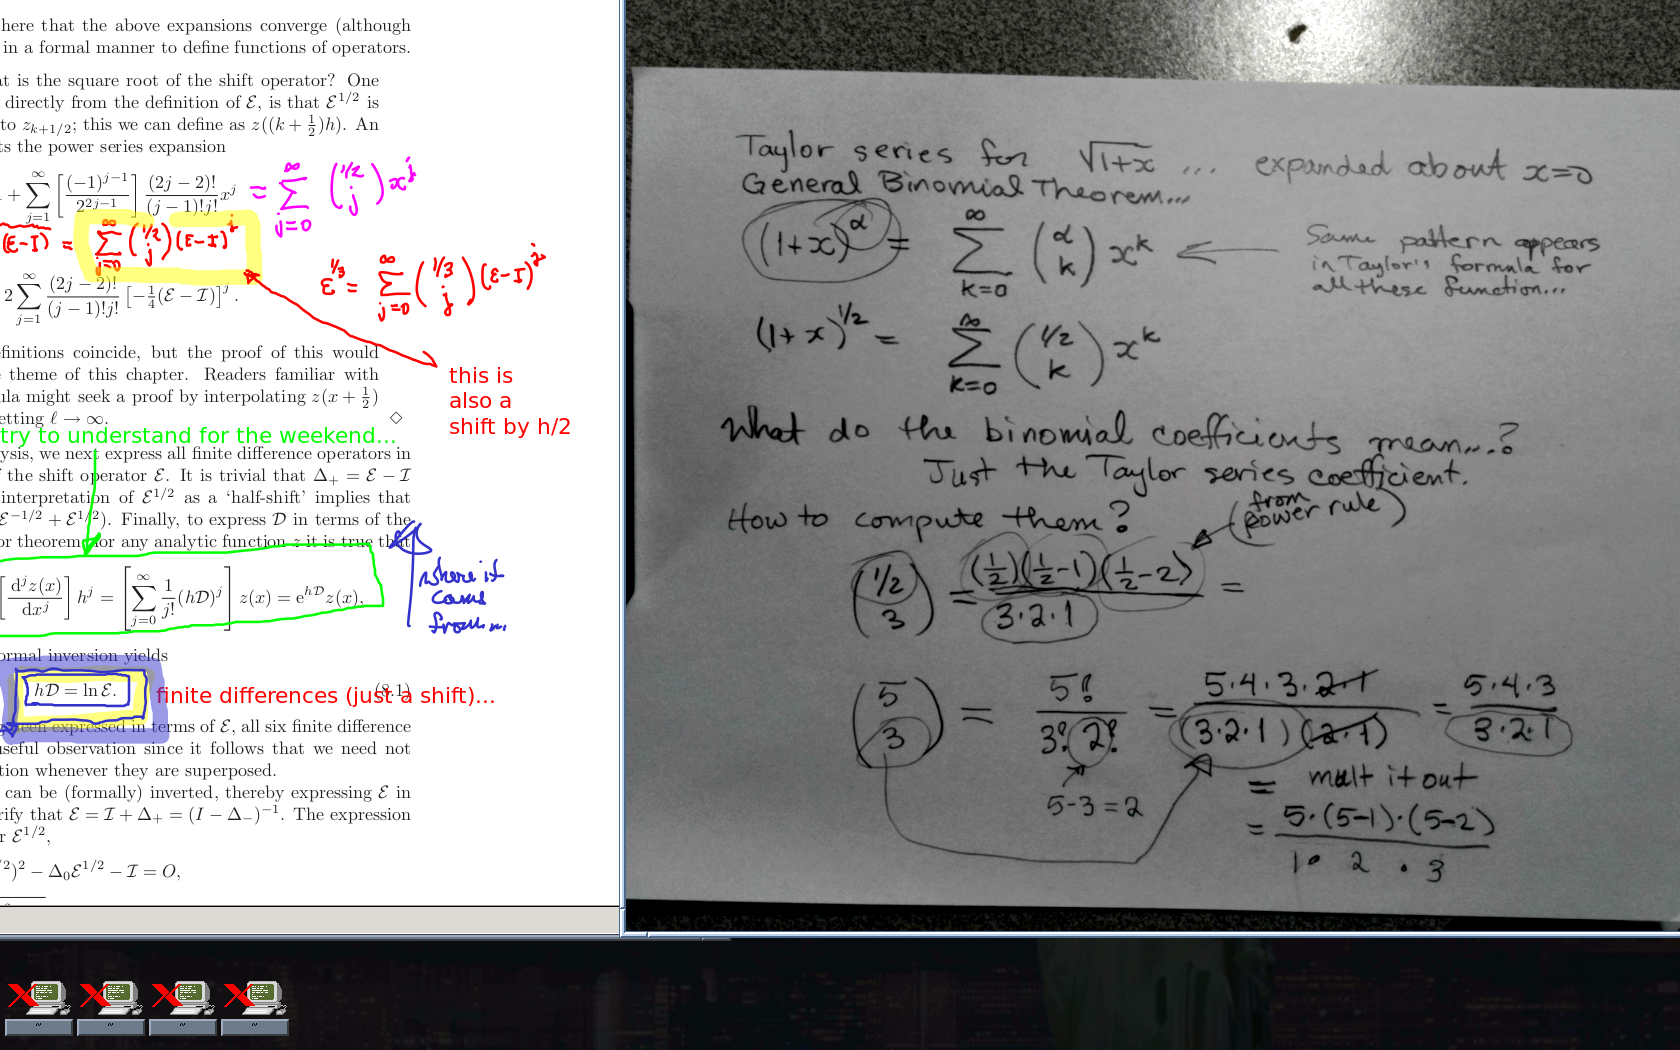 here that the above expansions converge (although
in a formal manner to define functions of operators.
at is the square root of the shift operator? One
directly from the definition of ℰ, is that ℰ^{1/2} is
to z_{k+1/2}; this we can define as z((k + 1/2)h). An
ts the power series expansion
+ ∑_{j=1}^{∞} [(-1)^{j-1}/2^{2j-1}] (2j − 2)!/((j − 1)!j!) x^j = ∑_{j=0}^{∞} (1/2 j) x^j
(ℰ-I) = ∑_{j=0}^{∞} (1/2 j) (ℰ-I)^j
ℰ^{1/3} = ∑_{j=0}^{∞} (1/3 j) (ℰ-I)^j
2 ∑_{j=1}^{∞} (2j − 2)!/((j − 1)!j!) [−1/4(ℰ − ℐ)]^j.
efinitions coincide, but the proof of this would
theme of this chapter. Readers familiar with
ula might seek a proof by interpolating z(x + 1/2)
etting ℓ → ∞. ◇
this is
also a
shift by h/2
try to understand for the weekend...
ysis, we next express all finite difference operators in
f the shift operator ℰ. It is trivial that Δ₊ = ℰ − ℐ
interpretation of ℰ^{1/2} as a ‘half-shift’ implies that
ℰ^{−1/2} + ℰ^{1/2}). Finally, to express 𝒟 in terms of the
or theorem for any analytic function z it is true that
[d^j z(x)/dx^j] h^j = [∑_{j=0}^{∞} 1/j! (h𝒟)^j] z(x) = e^{h𝒟} z(x).
where it
comes
from...
ormal inversion yields
h𝒟 = ln ℰ. (8.1)
finite differences (just a shift)...
been expressed in terms of ℰ, all six finite difference
useful observation since it follows that we need not
tion whenever they are superposed.
can be (formally) inverted, thereby expressing ℰ in
rify that ℰ = ℐ + Δ₊ = (I − Δ₋)^{−1}. The expression
r ℰ^{1/2},
/2)^2 − Δ₀ℰ^{1/2} − ℐ = O,
Taylor series for √(1+x) ... expanded about x=0
General Binomial Theorem...
(1+x)^α = ∑_{k=0}^{∞} (α k) x^k
Same pattern appears
in Taylor's formula for
all these function...
(1+x)^{1/2} = ∑_{k=0}^{∞} (1/2 k) x^k
What do the binomial coefficients mean...?
Just the Taylor series coefficient.
How to compute them?
(from
power rule)
(1/2 3) = (1/2)(1/2-1)(1/2-2) / 3·2·1 =
(5 3) = 5!/3!2! = 5·4·3·2·1/(3·2·1)(2·1) = 5·4·3/3·2·1
5-3=2
= mult it out
= 5·(5-1)·(5-2)
1 · 2 · 3
~
~
~
~